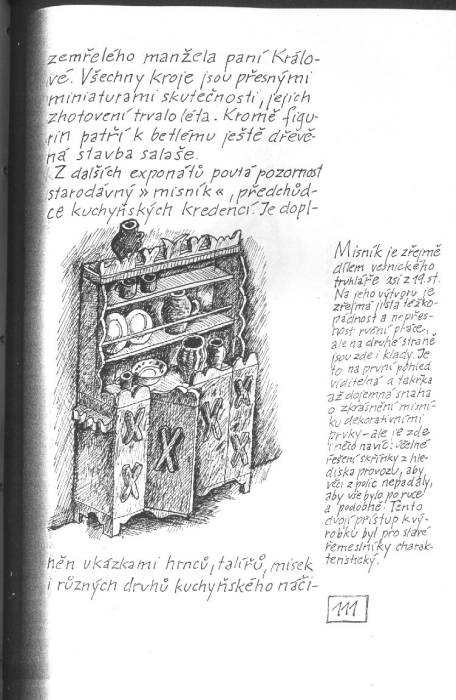 zemřelého manžela paní Králo-
vé. Všechny kroje jsou přesnými
miniaturami skutečnosti, jejich
zhotovení trvalo léta. Kromě figu-
rin patří k betlému ještě dřevě-
ná stavba salaše.
Z dalších exponátů poutá pozornost
starodávný » misník «, předchůd-
ce kuchyňských kredencí. Je dopl-
něn ukázkami hrnců, talířů, misek
i různých druhů kuchyňského náči-
Misník je zřejmě
dílem velnického
truhláře asi z 19. st.
Na jeho výtvoru je
zřejmá jistá těžko-
pádnost a nepřes-
nost ruční práce,
ale na druhé straně
jsou zde i klady. Je
to na první pohled
viditelná a takřka
až dojemná snaha
o zkrášlení misní-
ku dekorativními
prvky - ale je zde
i něco navíc: účelné
řešení skříňky z hle-
diska provozu, aby
věci z polic nepadaly,
aby vše bylo po ruce
a podobně. Tento
dvojí přístup k vý-
robku byl pro staré
řemeslníky charak-
teristický.
111